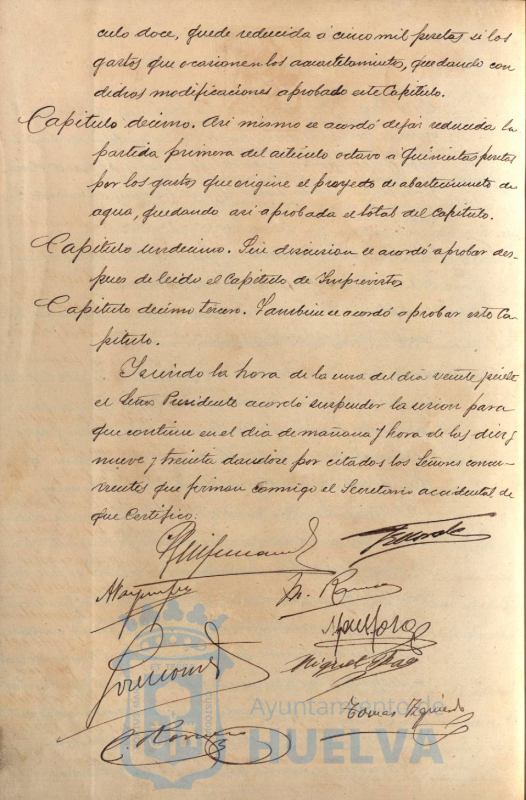 culo doce, quede reducida á cinco mil pesetas si los
gastos que ocasionen los acuartelamientos, quedando con
dichas modificaciones aprobado este Capítulo.
Capítulo decimo. Asi mismo se acordó dejar reducida la
partida primera del articulo octavo a quinientas pesetas
por los gastos que origine el proyecto de abastecimiento de
agua, quedando asi aprobada el total del Capitulo.
Capitulo undecimo. Sin discusion se acordó aprobar des-
pues de leido el Capitulo de Imprevistos
Capitulo decimo tercero. Tambien se acordó aprobar este Ca-
pitulo.
Y siendo la hora de la una del dia veinte y siete
el Señor Presidente acordó suspender la sesion para
que continue en el dia de mañana y hora de las diez y
nueve y treinta dandose por citados los Señores concu-
rrentes que firman conmigo el Secretario accidental de
que Certifico.
M. Romero
Miguel
Tomas Izquierdo
C. Romero
Ayuntamiento de
HUELVA